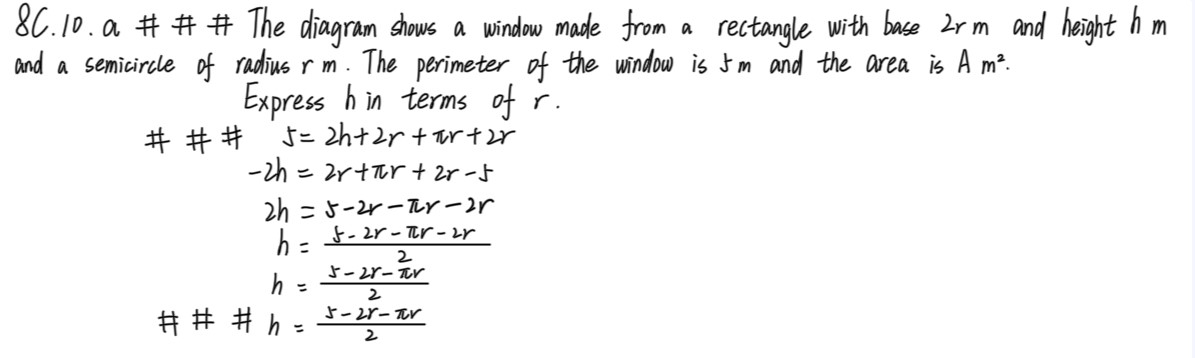 8C.10.a # # # The diagram shows a window made from a rectangle with base 2r m and height h m
and a semicircle of radius r m. The perimeter of the window is 5 m and the area is A m².
Express h in terms of r.
# # # 5 = 2h+2r+πr+2r
-2h = 2r+πr+2r-5
2h = 5-2r-πr-2r
h = \frac{5-2r-πr-2r}{2}
h = \frac{5-2r-πr}{2}
# # # h = \frac{5-2r-πr}{2}